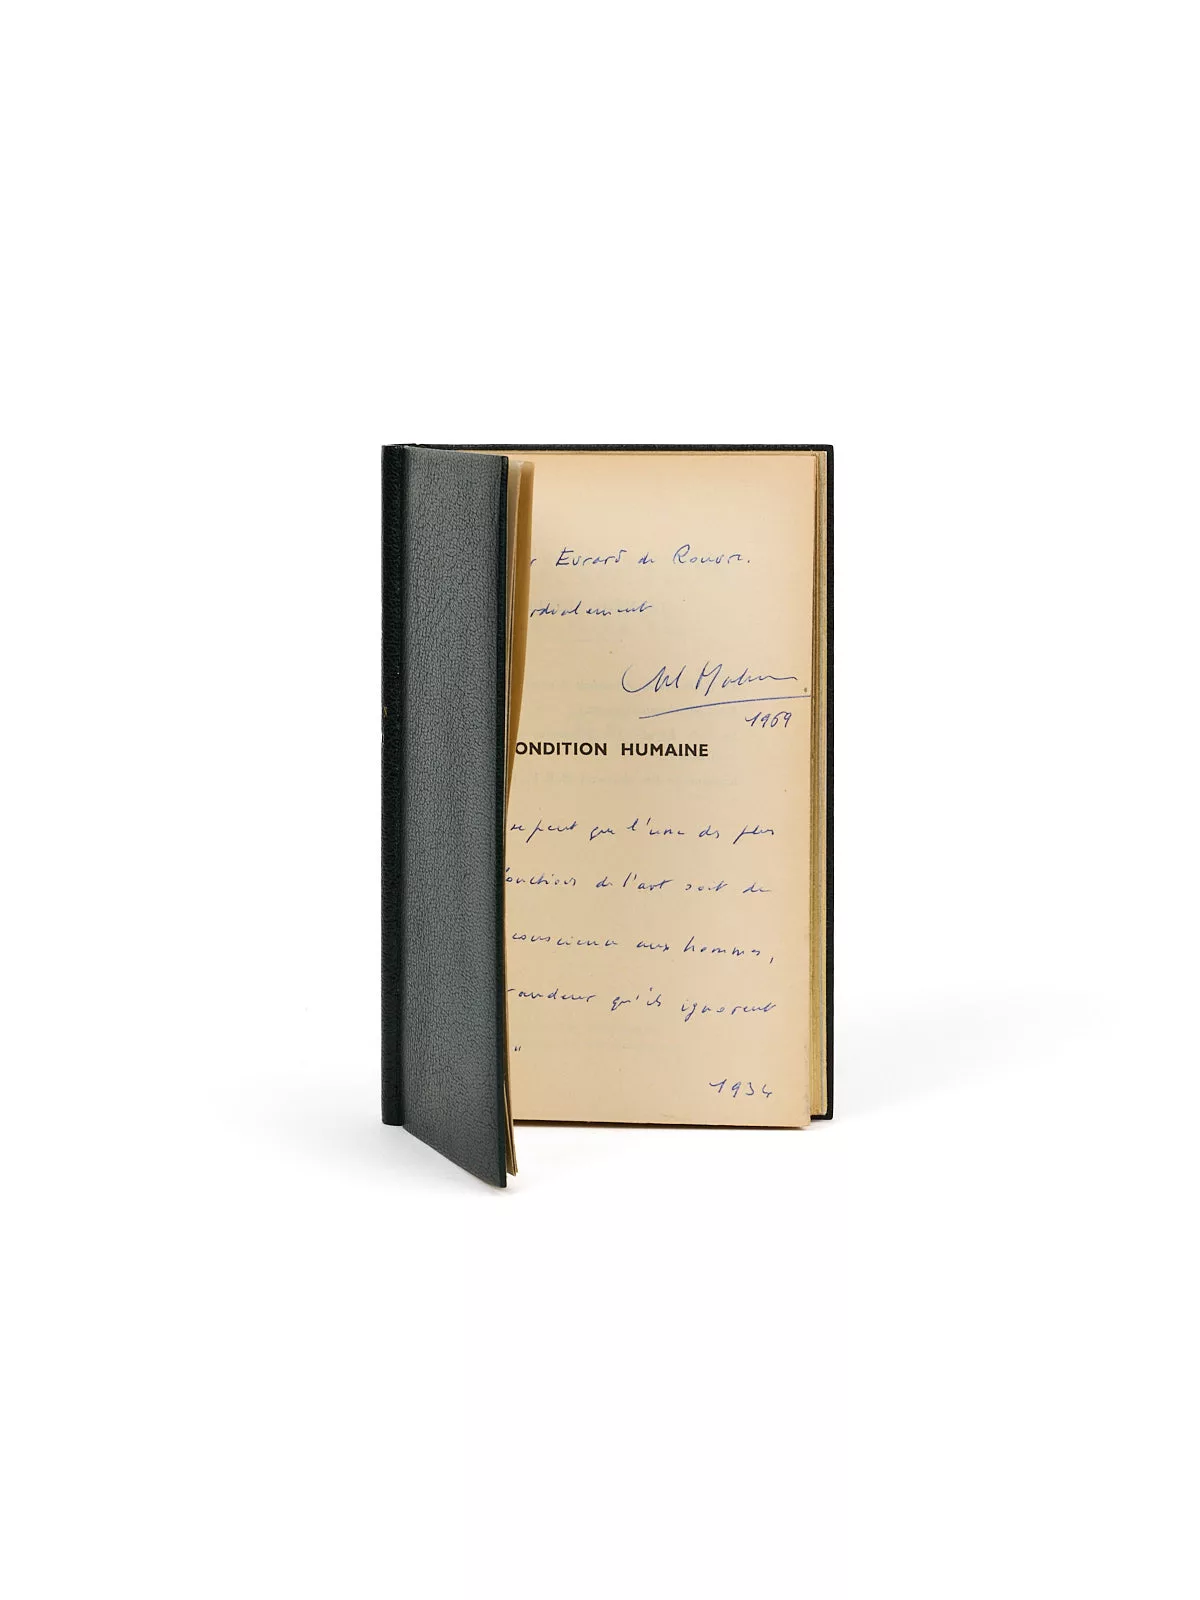 r Evrard de Rouvre.
rdialement
André Malraux
1969
ONDITION HUMAINE
se peut que l'une des plus
fonctions de l'art soit de
conscience aux hommes,
randeur qu'ils ignorent
"
1934